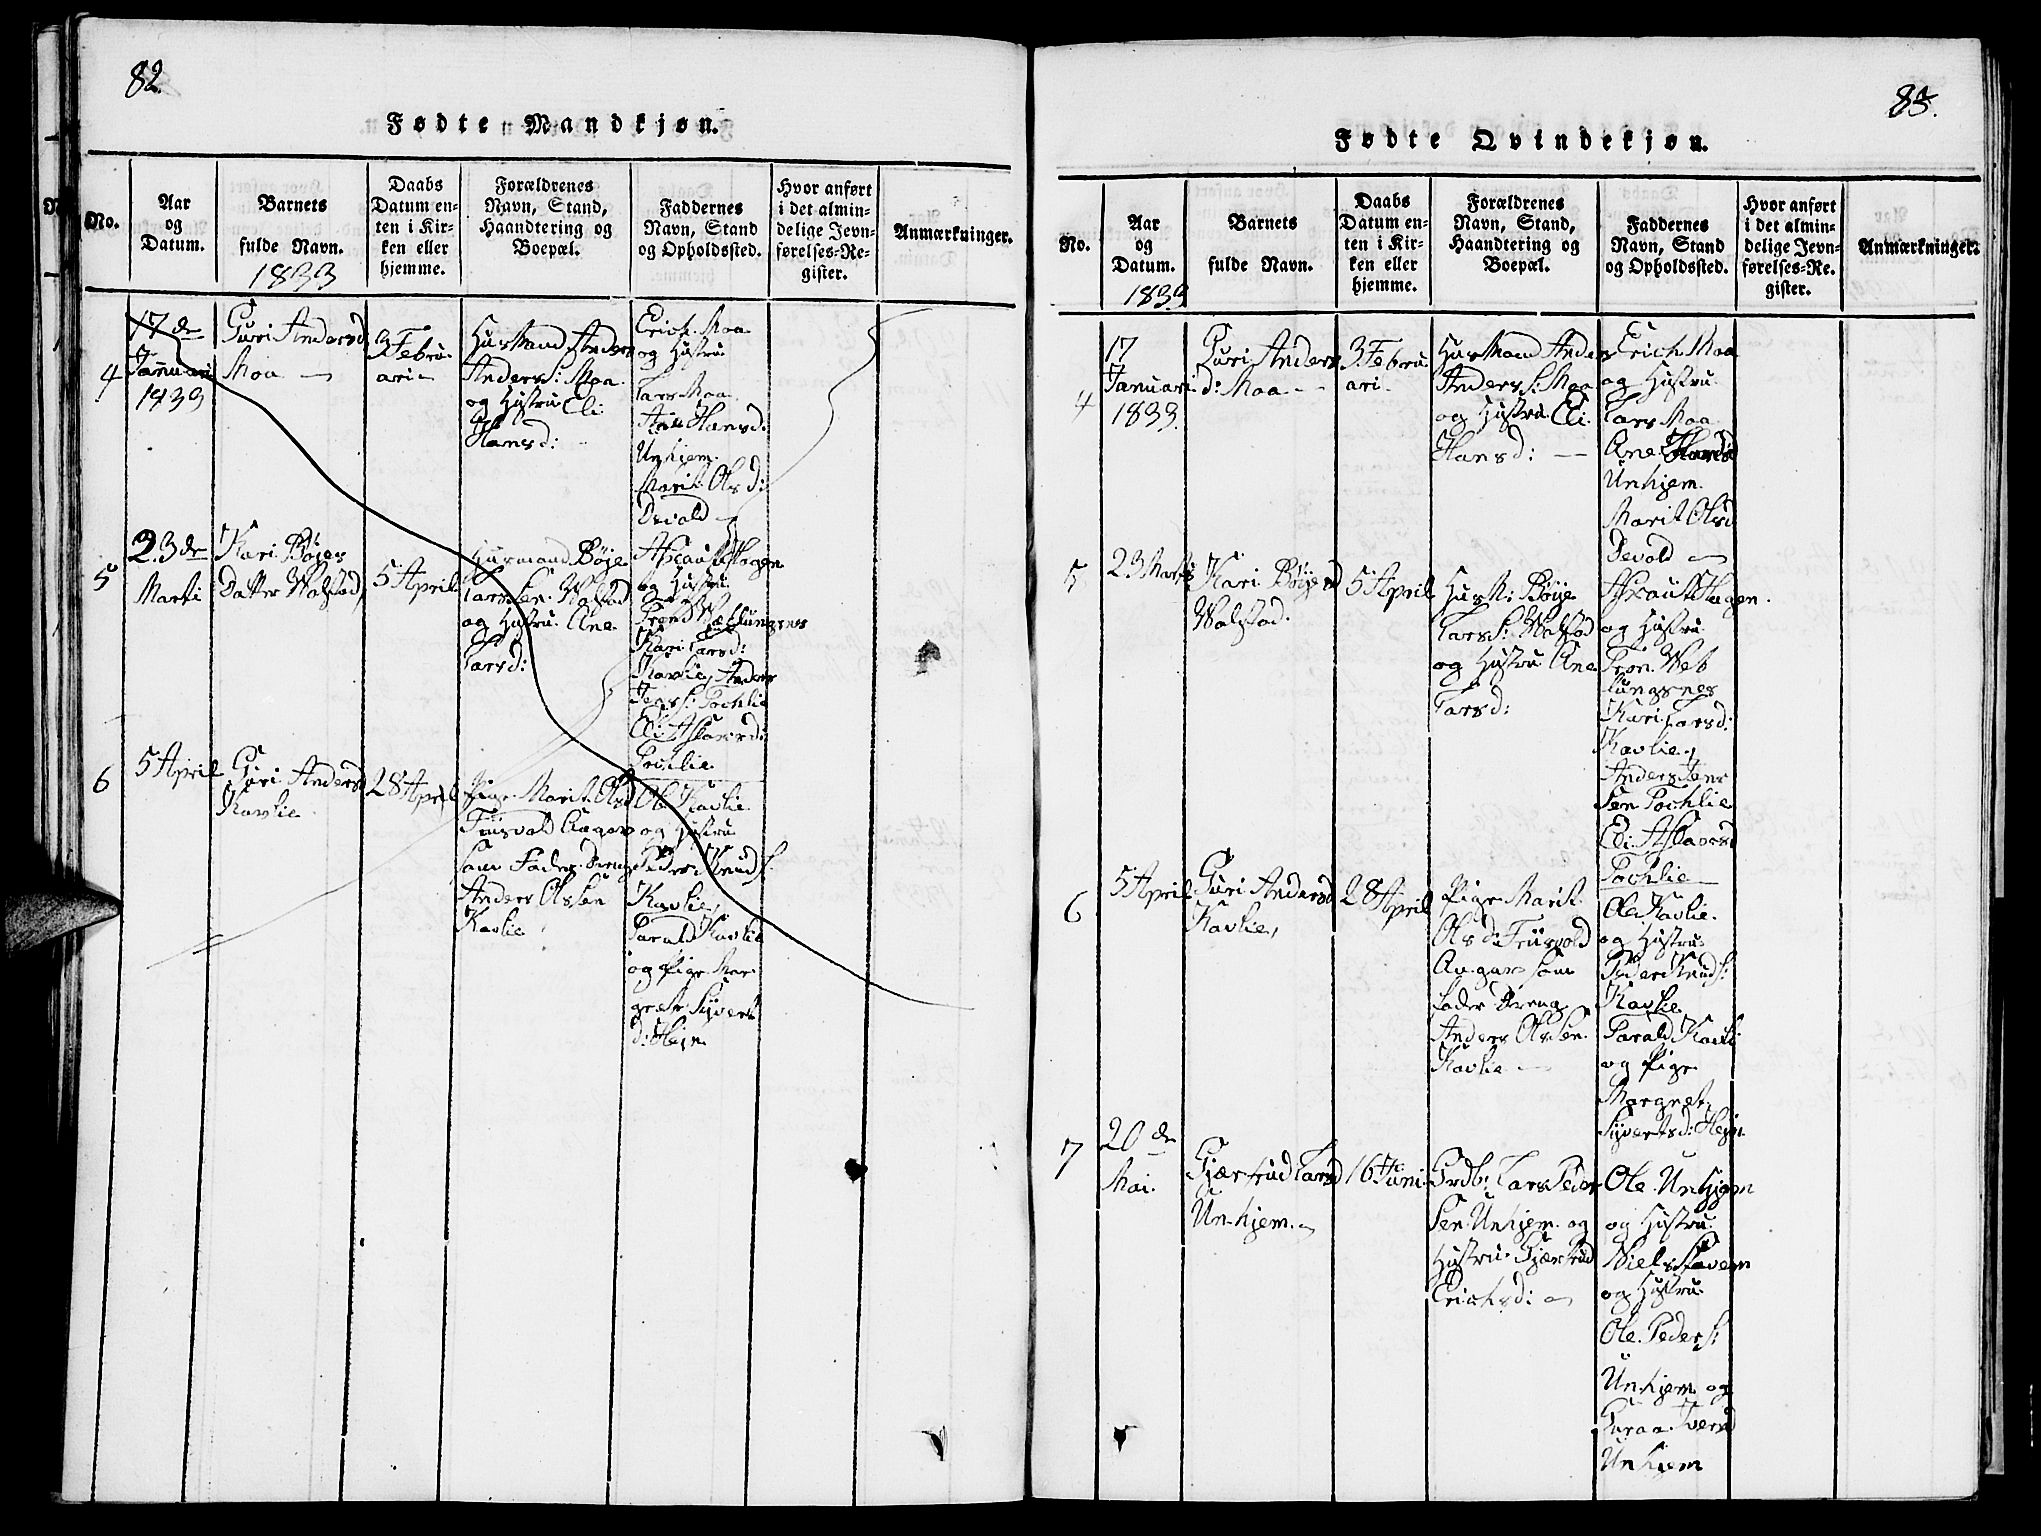 82.
Fødte Mandkjøn.
No.
Aar
og
Datum.
Barnets
fulde Navn.
1833
Daabs
Datum en-
ten i Kir-
ken eller
hjemme.
Forældrenes
Navn, Stand,
Haandtering og
Boepæl.
Faddernes
Navn, Stand
og Opholdssted.
Hvor anført
i det almin-
delige Jevn-
førelses-Re-
gister.
Anmærkninger.
4
17de
Januari
1833
Guri Andersd
Moa
3 Febru
ari
Husmand Anders
Anders S: Moa
og Hustru Eli
Hansd:
Erich Moa
og Hustru
Lars Moa
Ane Hansd:
Unhjem.
Marit Olsd:
Devold
5
23de
Marti
Kari Bøjes
Datter Walstad,
5 April
Husmand Bøje
Larssen Walstad
og Hustru Ane
Larsd:
Aslaus Hagen
og Hustru
Trond Weblungsnes
Kari Larsd:
Kavlie, Anders
Jens S: Tochlie
Eli Aslaksd:
Tochlie
6
5 April
Guri Andersd
Kavlie
28 April
Pige Marit Olsd
Frisvold Angav
som Fader Dreng
Anders Olssen
Kavlie
Ole Kavlie
og Hustru
Peder Knud S:
Kavlie,
Tarald Kavlie
og Pige Mar
grete Syvert
d: Hejn
83.
Fødte Qvindekjøn.
No.
Aar
og
Datum.
1833
Barnets
fulde Navn.
Daabs
Datum en-
ten i Kir-
ken eller
hjemme.
Forældrenes
Navn, Stand,
Haandtering og
Boepæl.
Faddernes
Navn, Stand
og Opholdssted.
Hvor anført
i det almin-
delige Jevn-
førelses-Re-
gister.
Anmærkninger.
4
17
Januari
1833.
Guri Anders
d: Moa
3 Febru
ari
Husmand Anders
Anders S: Moa
og Hustru Eli
Hansd:
Erich Moa
og Hustru
Lars Moa
Ane Hansd
Unhjem.
Marit Olsd
Devold
5
23 Martii
Kari Bøjesd
Walstad.
5 April
Husm: Bøje
Lars S: Walstad
og Hustru Ane
Larsd:
Hagen.
og Hustru
Tron Web
lungsnes
Kari Larsd:
Kavlie,
Anders Jens
sen Tochlie
Eli Aslaksd
Tochlie
6
5 April
Guri Andersd
Kavlie,
28 April
Pige Marit
Olsd: Frisvold
Angav som
Fader Dreng
Anders Olssen
Kavlie
Ole Kavlie.
og Hustru
Peder Knud S:
Kavlie
Tarald Kavli
og Pige
Margrete
Syvertsd: Hejn
7
20de
Mai.
Gjærtrud Larsd
Unhjem.
16 Juni
Grdb: Lars Peder
sen Unhjem og
Hustru Gjærtrud
Erichsd:
Ole Unhjem
og Hustru
Niels Stavem
og Hustru
Ole Peder S:
Unhjem og
Guraa Iversd
Unhjem